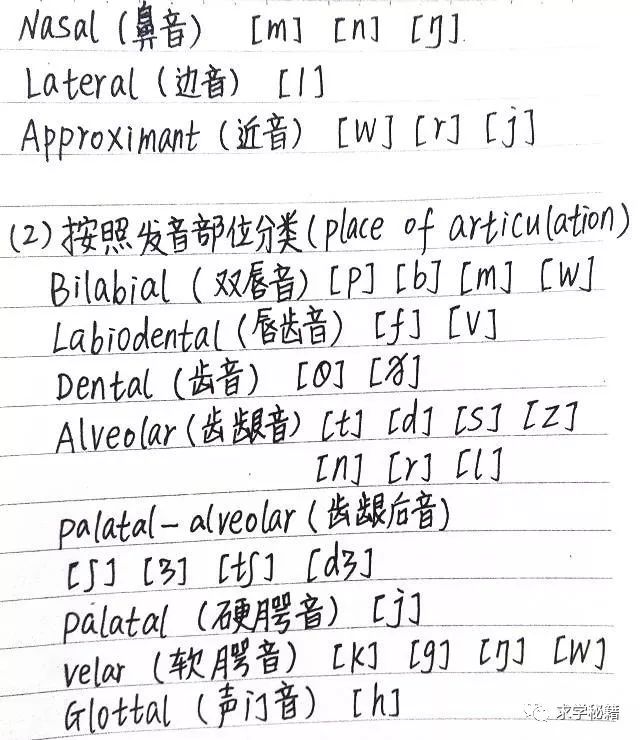 Nasal (鼻音) [m] [n] [ŋ]
Lateral (边音) [l]
Approximant (近音) [w] [r] [j]
(2) 按照发音部位分类 (place of articulation)
Bilabial (双唇音) [p] [b] [m] [w]
Labiodental (唇齿音) [f] [v]
Dental (齿音) [θ] [ð]
Alveolar (齿龈音) [t] [d] [s] [z]
[n] [r] [l]
palatal-alveolar (齿龈后音)
[ʃ] [ʒ] [tʃ] [dʒ]
palatal (硬腭音) [j]
velar (软腭音) [k] [g] [ŋ] [w]
Glottal (声门音) [h]
求学秘籍